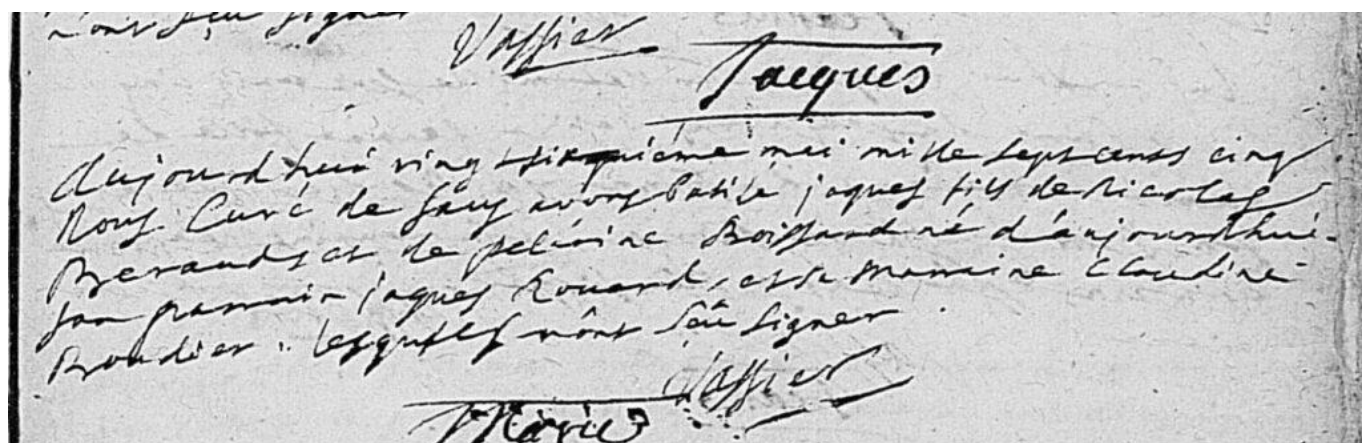 n'ont sçu signer
Vassier
Jacques
Aujourd'huÿ vingt sixiéme mai mille sept cents cinq
Nous Curé de avons batisé jaques fils de Nicolas
Beraud et de pelérine Boissard né d'aujourdhui
son parrain jaques Rouard, et sa marraine Claudine
Brondier. lesquels n'ont sçeü signer.
Vassier
Marie